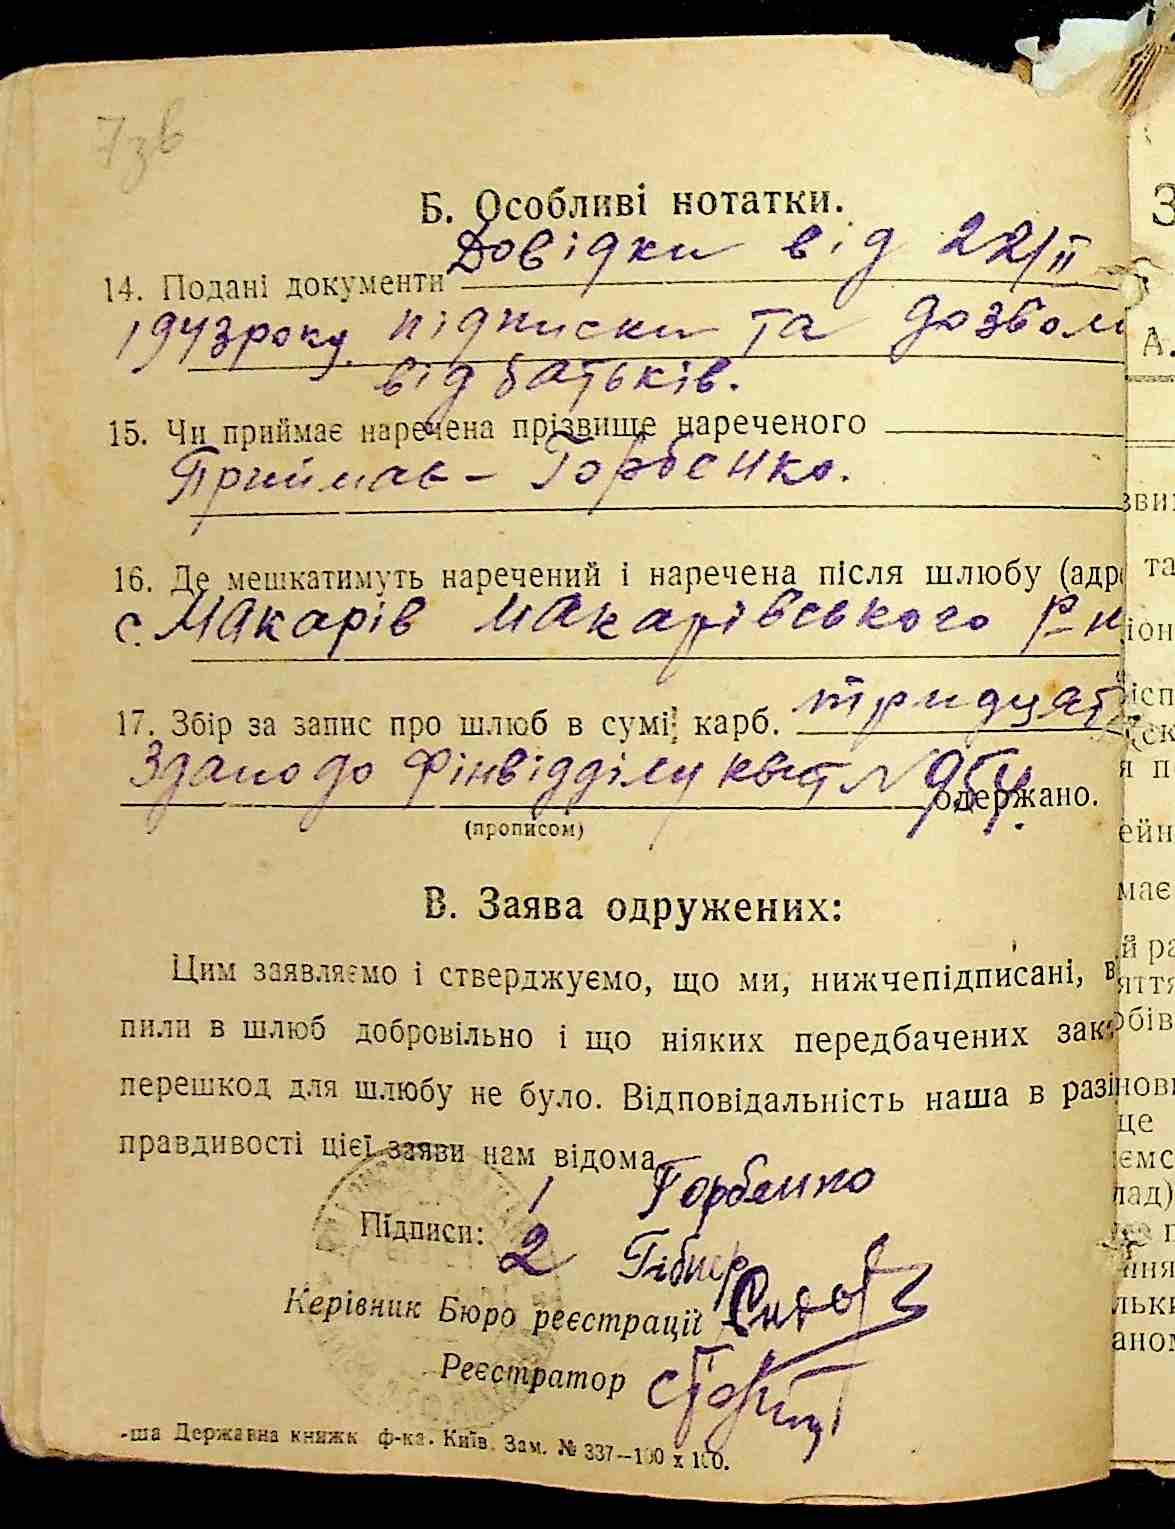 7зв
Б. Особливі нотатки.
14. Подані документи Довідки від 22/II
1943 року, підписки та дозволи
від батьків.
15. Чи приймає наречена прізвище нареченого
Приймає – Горбенко.
16. Де мешкатимуть наречений і наречена після шлюбу (адре
с. Макарів Макарівського р-н
17. Збір за запис про шлюб в сумі карб. тридцят
Здано до Фінвідділу квит №
одержано.
(прописом)
В. Заява одружених:
Цим заявляємо і стверджуємо, що ми, нижчепідписані, в
пили в шлюб добровільно і що ніяких передбачених зак
перешкод для шлюбу не було. Відповідальність наша в разі
правдивості цієї заяви нам відома.
1 Горбенко
Підписи:
2
Керівник Бюро реєстрації
Реєстратор
-ша Державна книжк. ф-ка. Київ. Зам. № 337—100 х 100.
З
А.